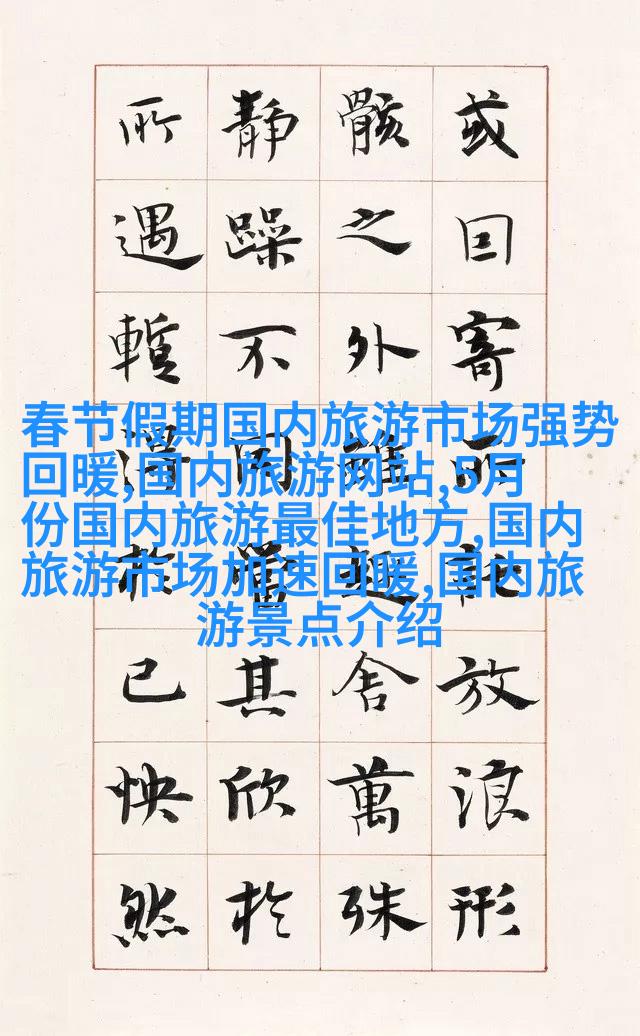 春节假期国内旅游市场强势
回暖,国内旅游网站,5月
份国内旅游最佳地方,国内
旅游市场加速回暖,国内旅
游景点介绍
或因寄所託放浪形
骸之外雖趣舍萬殊
静躁不同當其欣於
所遇暫得於己怏然